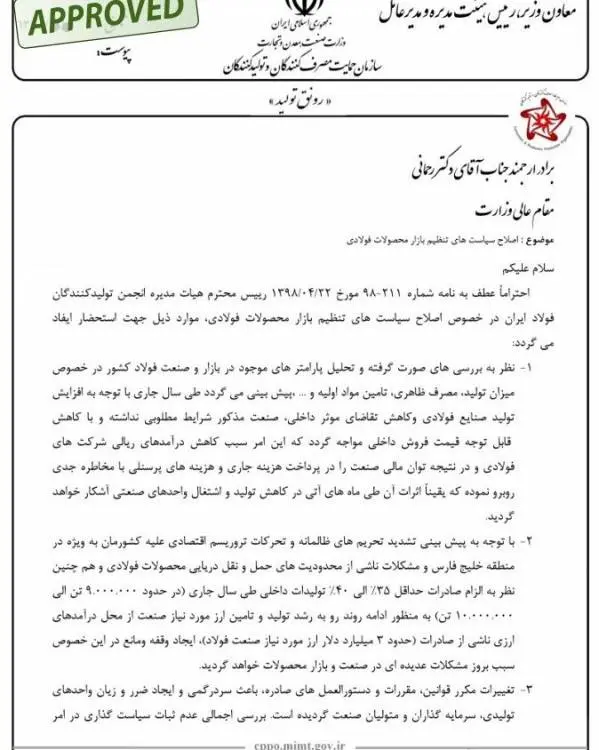 APPROVED
معاون وزیر، رییس هیئت مدیره و مدیرعامل
جمهوری اسلامی ایران
وزارت صنعت، معدن و تجارت
سازمان حمایت مصرف کنندگان و تولیدکنندگان
پیوست:
« رونق تولید »
برادر ارجمند جناب آقای دکتر رحمانی
مقام عالی وزارت
موضوع : اصلاح سیاست های تنظیم بازار محصولات فولادی
سلام علیکم
احتراماً عطف به نامه شماره ۲۱۱-۹۸ مورخ ۱۳۹۸/۰۴/۲۲ رییس محترم هیات مدیره انجمن تولیدکنندگان
فولاد ایران در خصوص اصلاح سیاست های تنظیم بازار محصولات فولادی، موارد ذیل جهت استحضار ایفاد
می گردد:
۱- نظر به بررسی های صورت گرفته و تحلیل پارامتر های موجود در بازار و صنعت فولاد کشور در خصوص
میزان تولید، مصرف ظاهری، تامین مواد اولیه و ... ،پیش بینی می گردد طی سال جاری با توجه به افزایش
تولید صنایع فولادی وکاهش تقاضای موثر داخلی، صنعت مذکور شرایط مطلوبی نداشته و با کاهش
قابل توجه قیمت فروش داخلی مواجه گردد که این امر سبب کاهش درآمدهای ریالی شرکت های
فولادی و در نتیجه توان مالی صنعت را در پرداخت هزینه جاری و هزینه های پرسنلی با مخاطره جدی
روبرو نموده که یقیناً اثرات آن طی ماه های آتی در کاهش تولید و اشتغال واحدهای صنعتی آشکار خواهد
گردید.
۲- با توجه به پیش بینی تشدید تحریم های ظالمانه و تحرکات تروریسم اقتصادی علیه کشورمان به ویژه در
منطقه خلیج فارس و مشکلات ناشی از محدودیت های حمل و نقل دریایی محصولات فولادی و هم چنین
نظر به الزام صادرات حداقل ۳۵٪ الی ۴۰٪ تولیدات داخلی طی سال جاری (در حدود ۹.۰۰۰.۰۰۰ تن الی
۱۰.۰۰۰.۰۰۰ تن) به منظور ادامه روند رو به رشد تولید و تامین ارز مورد نیاز صنعت از محل درآمدهای
ارزی ناشی از صادرات (حدود ۳ میلیارد دلار ارز مورد نیاز صنعت فولاد)، ایجاد وقفه ومانع در این خصوص
سبب بروز مشکلات عدیده ای در صنعت و بازار محصولات خواهد گردید.
۳- تغییرات مکرر قوانین، مقررات و دستورالعمل های صادره، باعث سردرگمی و ایجاد ضرر و زیان واحدهای
تولیدی، سرمایه گذاران و متولیان صنعت گردیده است. بررسی اجمالی عدم ثبات سیاست گذاری در امر
cppo.mimt.gov.ir